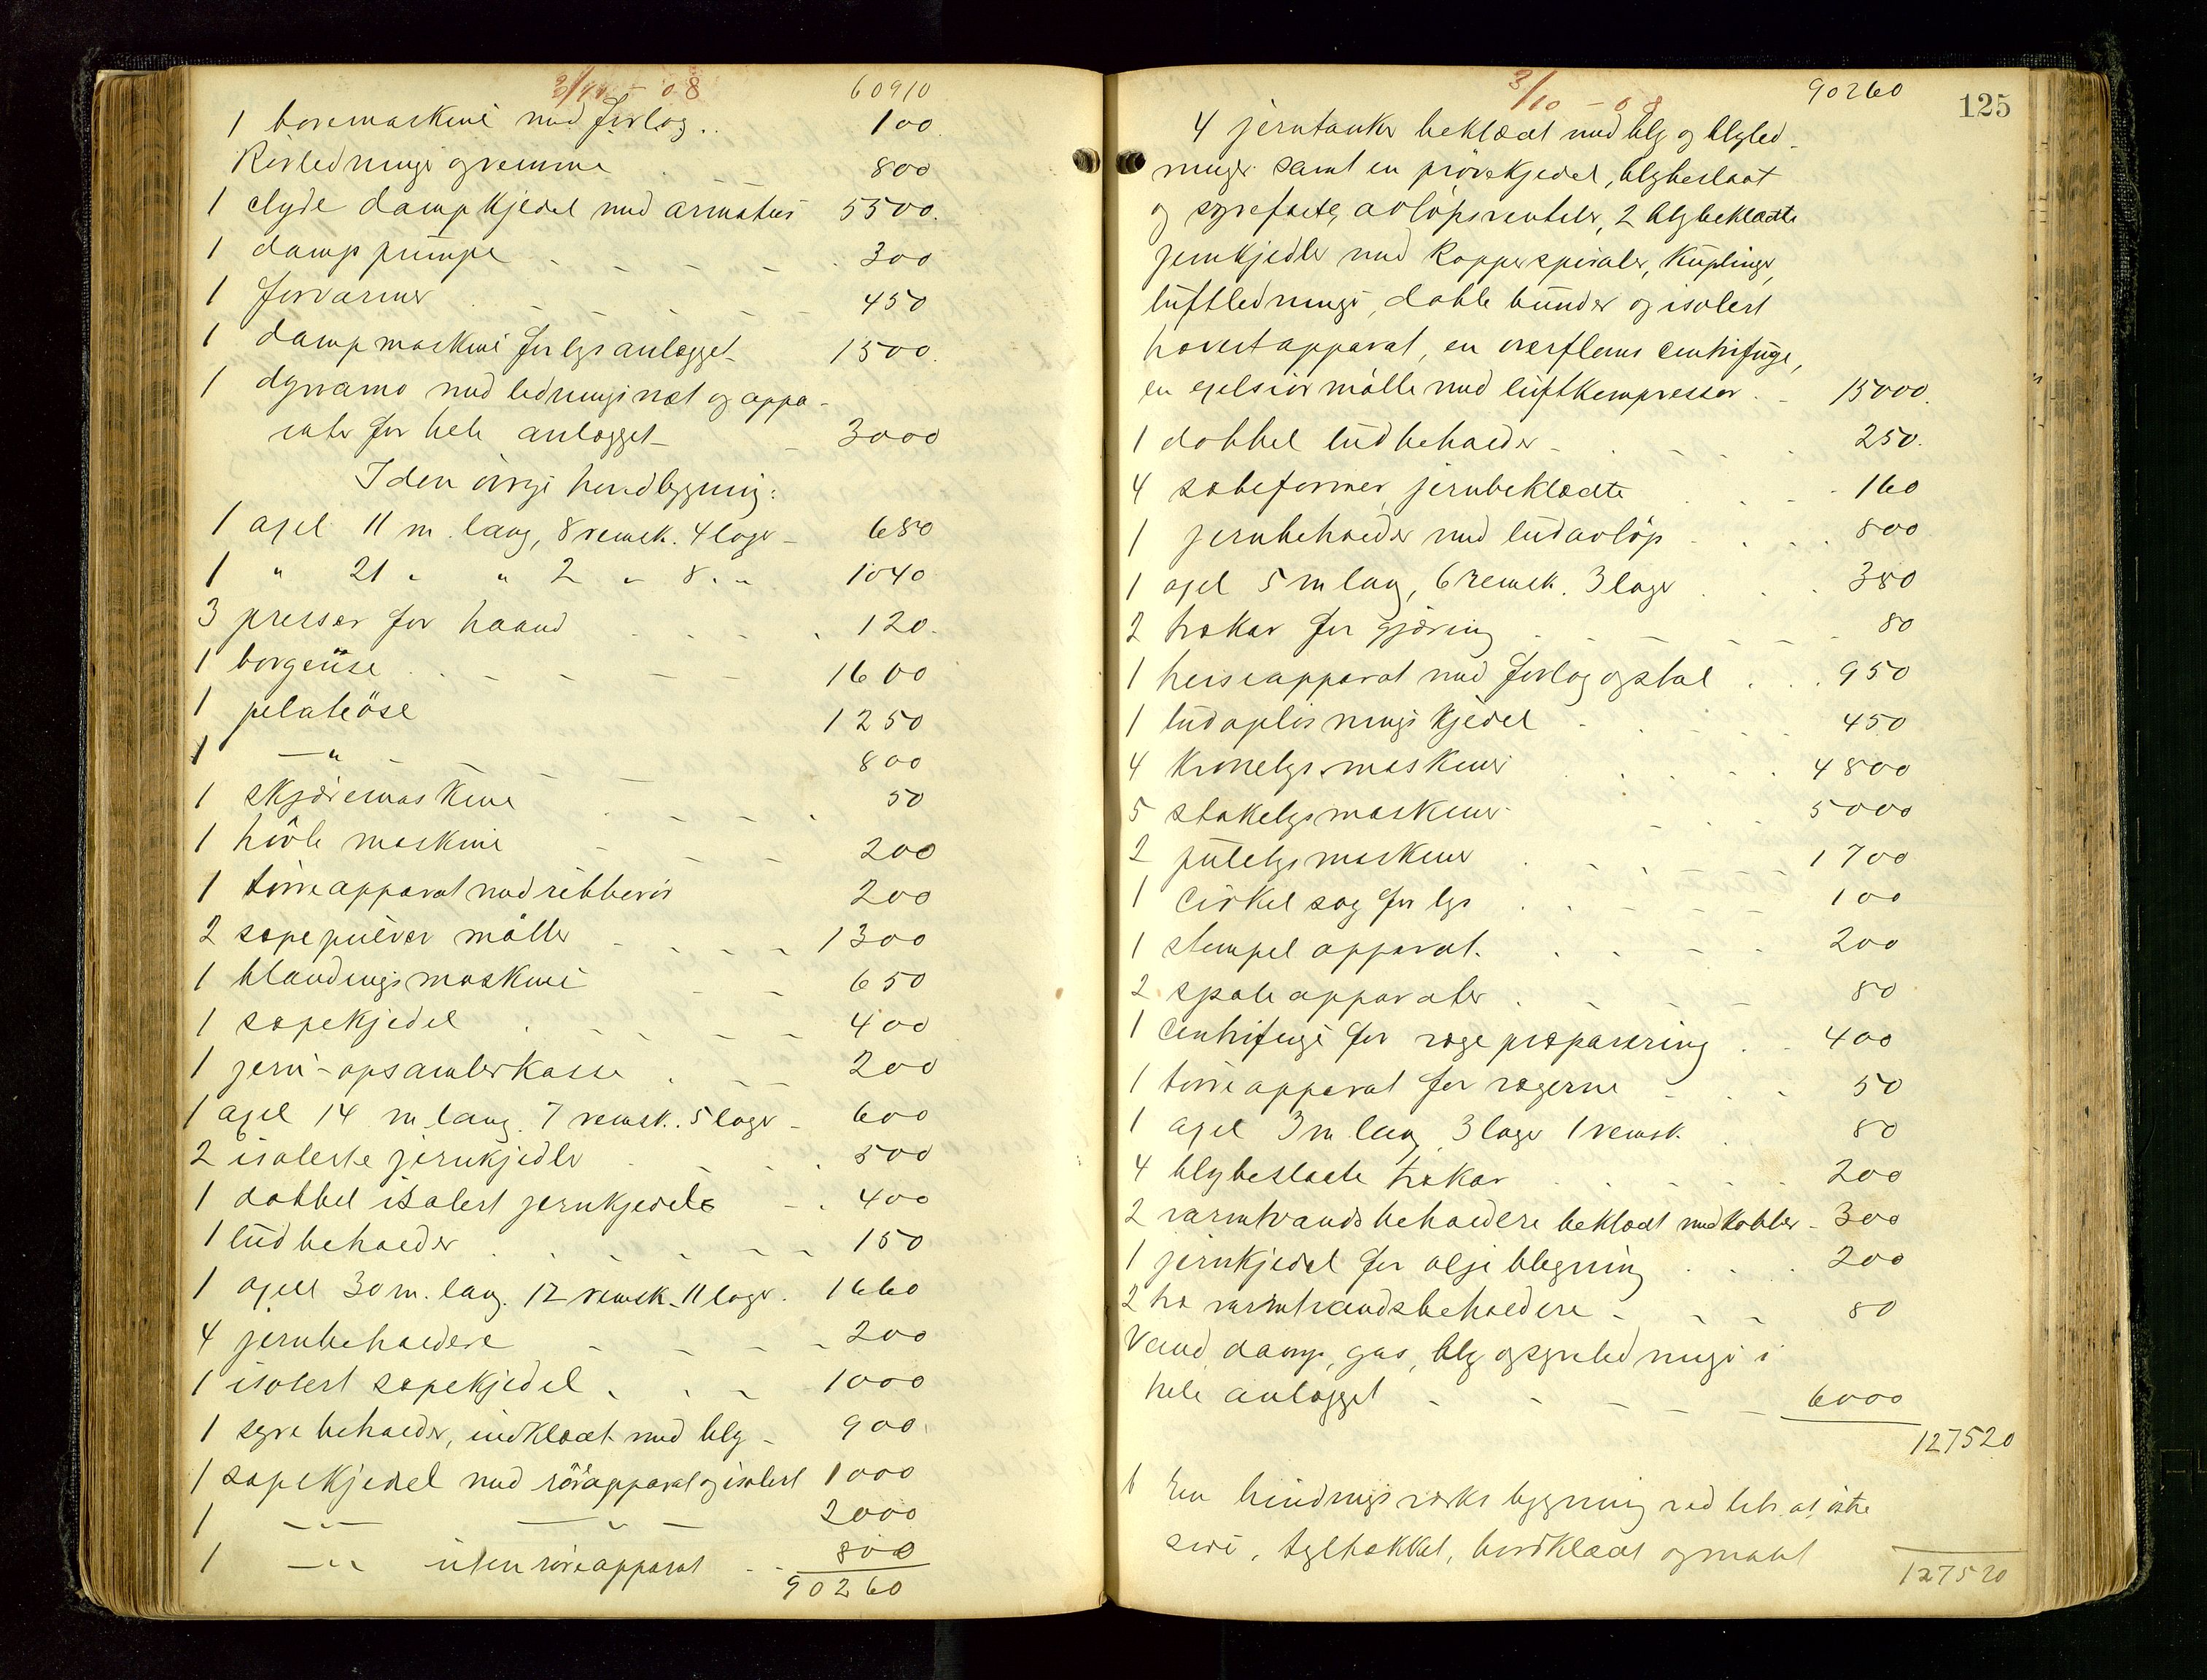 3/10 - 08 60910
1 boremaskine med forlag .. 100
Rörledninger og remme 800
1 clyde dampkjedel med armatur 5500.
1 damp pumpe 300
1 forvarmer 450
1 damp maskine for lysanlægget 1500.
1 dynamo med ledningsnæt og appa-
rater for hele anlægget 3000
I den övrige hovedbygning:
1 axel 11 m. lang, 8 remsk. 4 lager 680
1 " 21 " " 2 " 8 " " 1040
3 presser for haand 120.
1 borgeuse 1600
1 peloteöse 1250
1 — " — 800
1 skjæremaskine 50
1 hövle maskine 200
1 törreapparat med ribberör 200
2 sæpepulver möller 1300
1 blandingsmaskine 650
1 sæpekjedel 400
1 jern-opsamlerkasse 200
1 axel 14 m lang. 7 remsk. 5 lager 600
2 isolerte jernkjedler 500
1 dobbel isolert jernkjedel 400
1 ludbeholder 150
1 axel 30 m. lang. 12 remsk. 11 lager. 1660
4 jernbeholdere 200
1 isolert sæpekjedel 1000
1 syrebeholder, indklædt med bly 900.
1 sæpekjedel med röreapparat og isolert 1000
1 — " — — " — 2000
1 — " — uten röreapparat 800
90260
3/10 - 08 90260
125
4 jerntanker beklædt med bly og blyled-
ninger samt en prövekjedel, blybeslaat
og syrefaste avlöpsventiler, 2 blybeklædte
jernkjedler med kopperspiraler, kuplinger,
luftledninger, doble bunder og isolert
apparat, en centrifuge,
en exelsior mölle med luftkompressor. 15000.
1 dobbel ludbeholder 250.
4 sæbeformer jernbeklædte 160
1 jernbeholder med ludavlöp 800
1 axel 5 m lang, 6 remsk. 3 lager 380
2 trækar for gjæring 80
1 heiseapparat med forlag og stol 950
1 ludoplösningskjedel 450
4 kronelysmaskiner 4800
5 stakelysmaskiner 5000
2 julelysmaskiner 1700
1 cirkelsag for lys 100
1 stempel apparat. 200
2 apparater 80
1 centrifuge for væge præparering 400
1 törreapparat for vægerne 50
1 axel 3 m. lang 3 lager 1 remsk. 80
4 blybeslaate trækar 200
2 varmtvandsbeholdere beklædt med kobber 300
1 jernkjedel for oljeblegning 200
2 træ varmtvandsbeholdere 80
Vand, damp, gas, bly og syreledninger i
hele anlægget 6000
127520
b En bindingsverks bygning ved östre
side, tegltækket, bordklædt og malt
127520